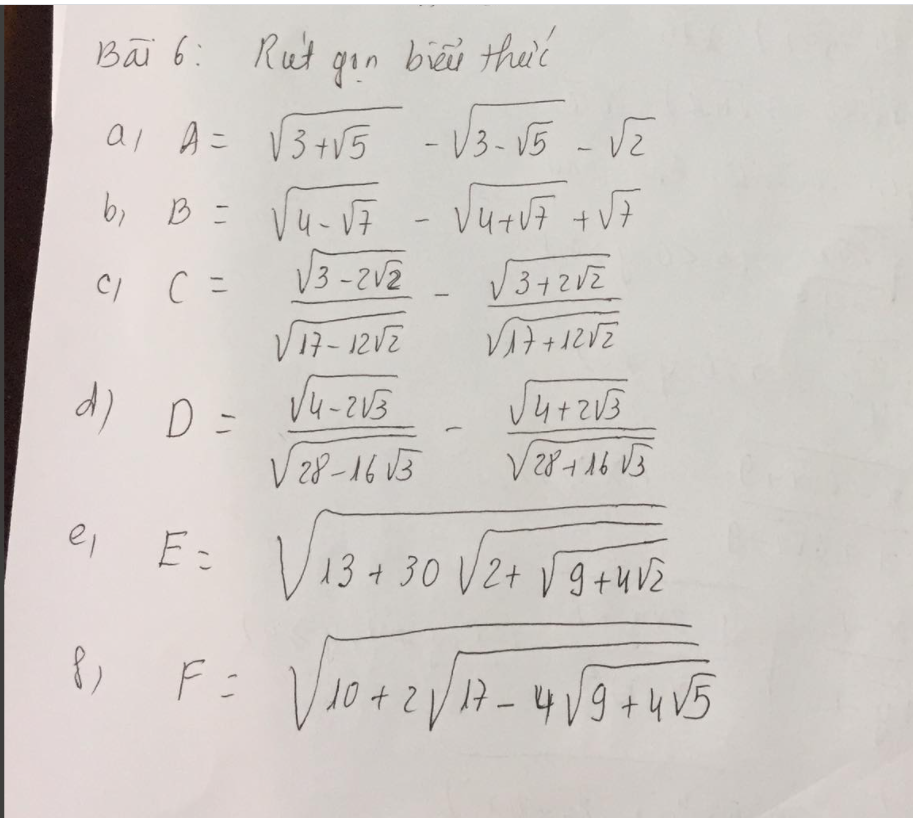 Bài 6: Rút gọn biểu thức
a, A = √(3+√5) - √(3-√5) - √2
b, B = √(4-√7) - √(4+√7) + √7
c, C = √(3-2√2)/√(17-12√2) - √(3+2√2)/√(17+12√2)
d) D = √(4-2√3)/√(28-16√3) - √(4+2√3)/√(28+16√3)
e, E = √(13+30√(2+√(9+4√2)))
f, F = √(10+2√(17-4√(9+4√5)))